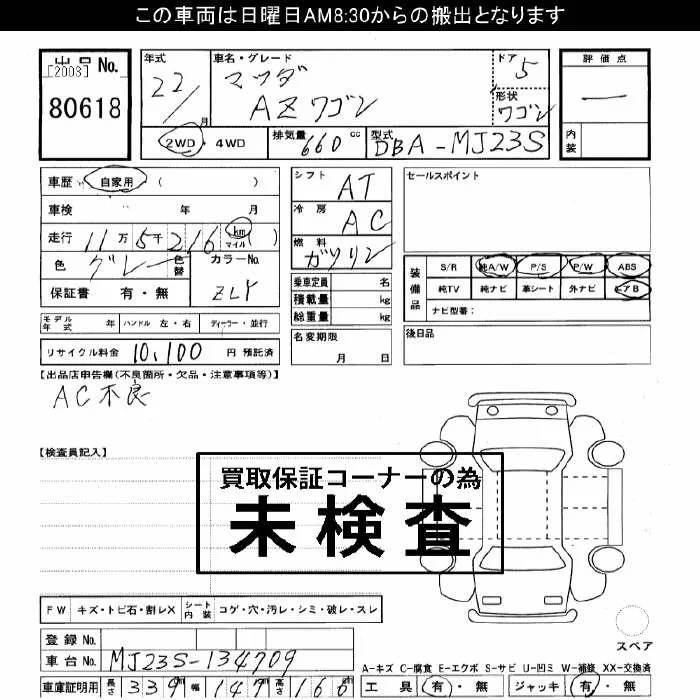 この車両は日曜日AM8:30からの搬出となります
出品 No.
[2003]
80618
年式
22/ 月
車名・グレード
マツダ
AZワゴン
ドア
5
形状
ワゴン
評価点
ー
内装
2WD・4WD
排気量 660 cc
型式 DBA-MJ23S
車歴 自家用 ( )
車検 年 月
走行 11万5千216 km マイル ( )
色 グレー 色替
カラーNo.
ZLY
保証書 有・無
シフト AT
冷房 AC
燃料 ガソリン
乗車定員 名
積載量 kg
総重量 kg
セールスポイント
装備品
S/R 純A/W P/S P/W ABS
純TV 純ナビ 革シート 外ナビ エアB
ナビ型番：
モデル年式 年 ハンドル 左・右 ディーラー・並行
名変期限
月 日
後日品
リサイクル料金 10,100 円 預託済
【出品店申告欄(不良箇所・欠品・注意事項等)】
AC不良
【検査員記入】
買取保証コーナーの為
未検査
FW キズ・トビ石・割レX シート内装 コゲ・穴・汚レ・シミ・破レ・スレ
登録 No.
車台 No. MJ23S-134709
スペア
A-キズ C-腐食 E-エクボ S-サビ U-凹ミ W-補修 XX-交換済
車庫証明用 長さ 339 幅 147 高さ 166
工具 有・無 ジャッキ 有・無